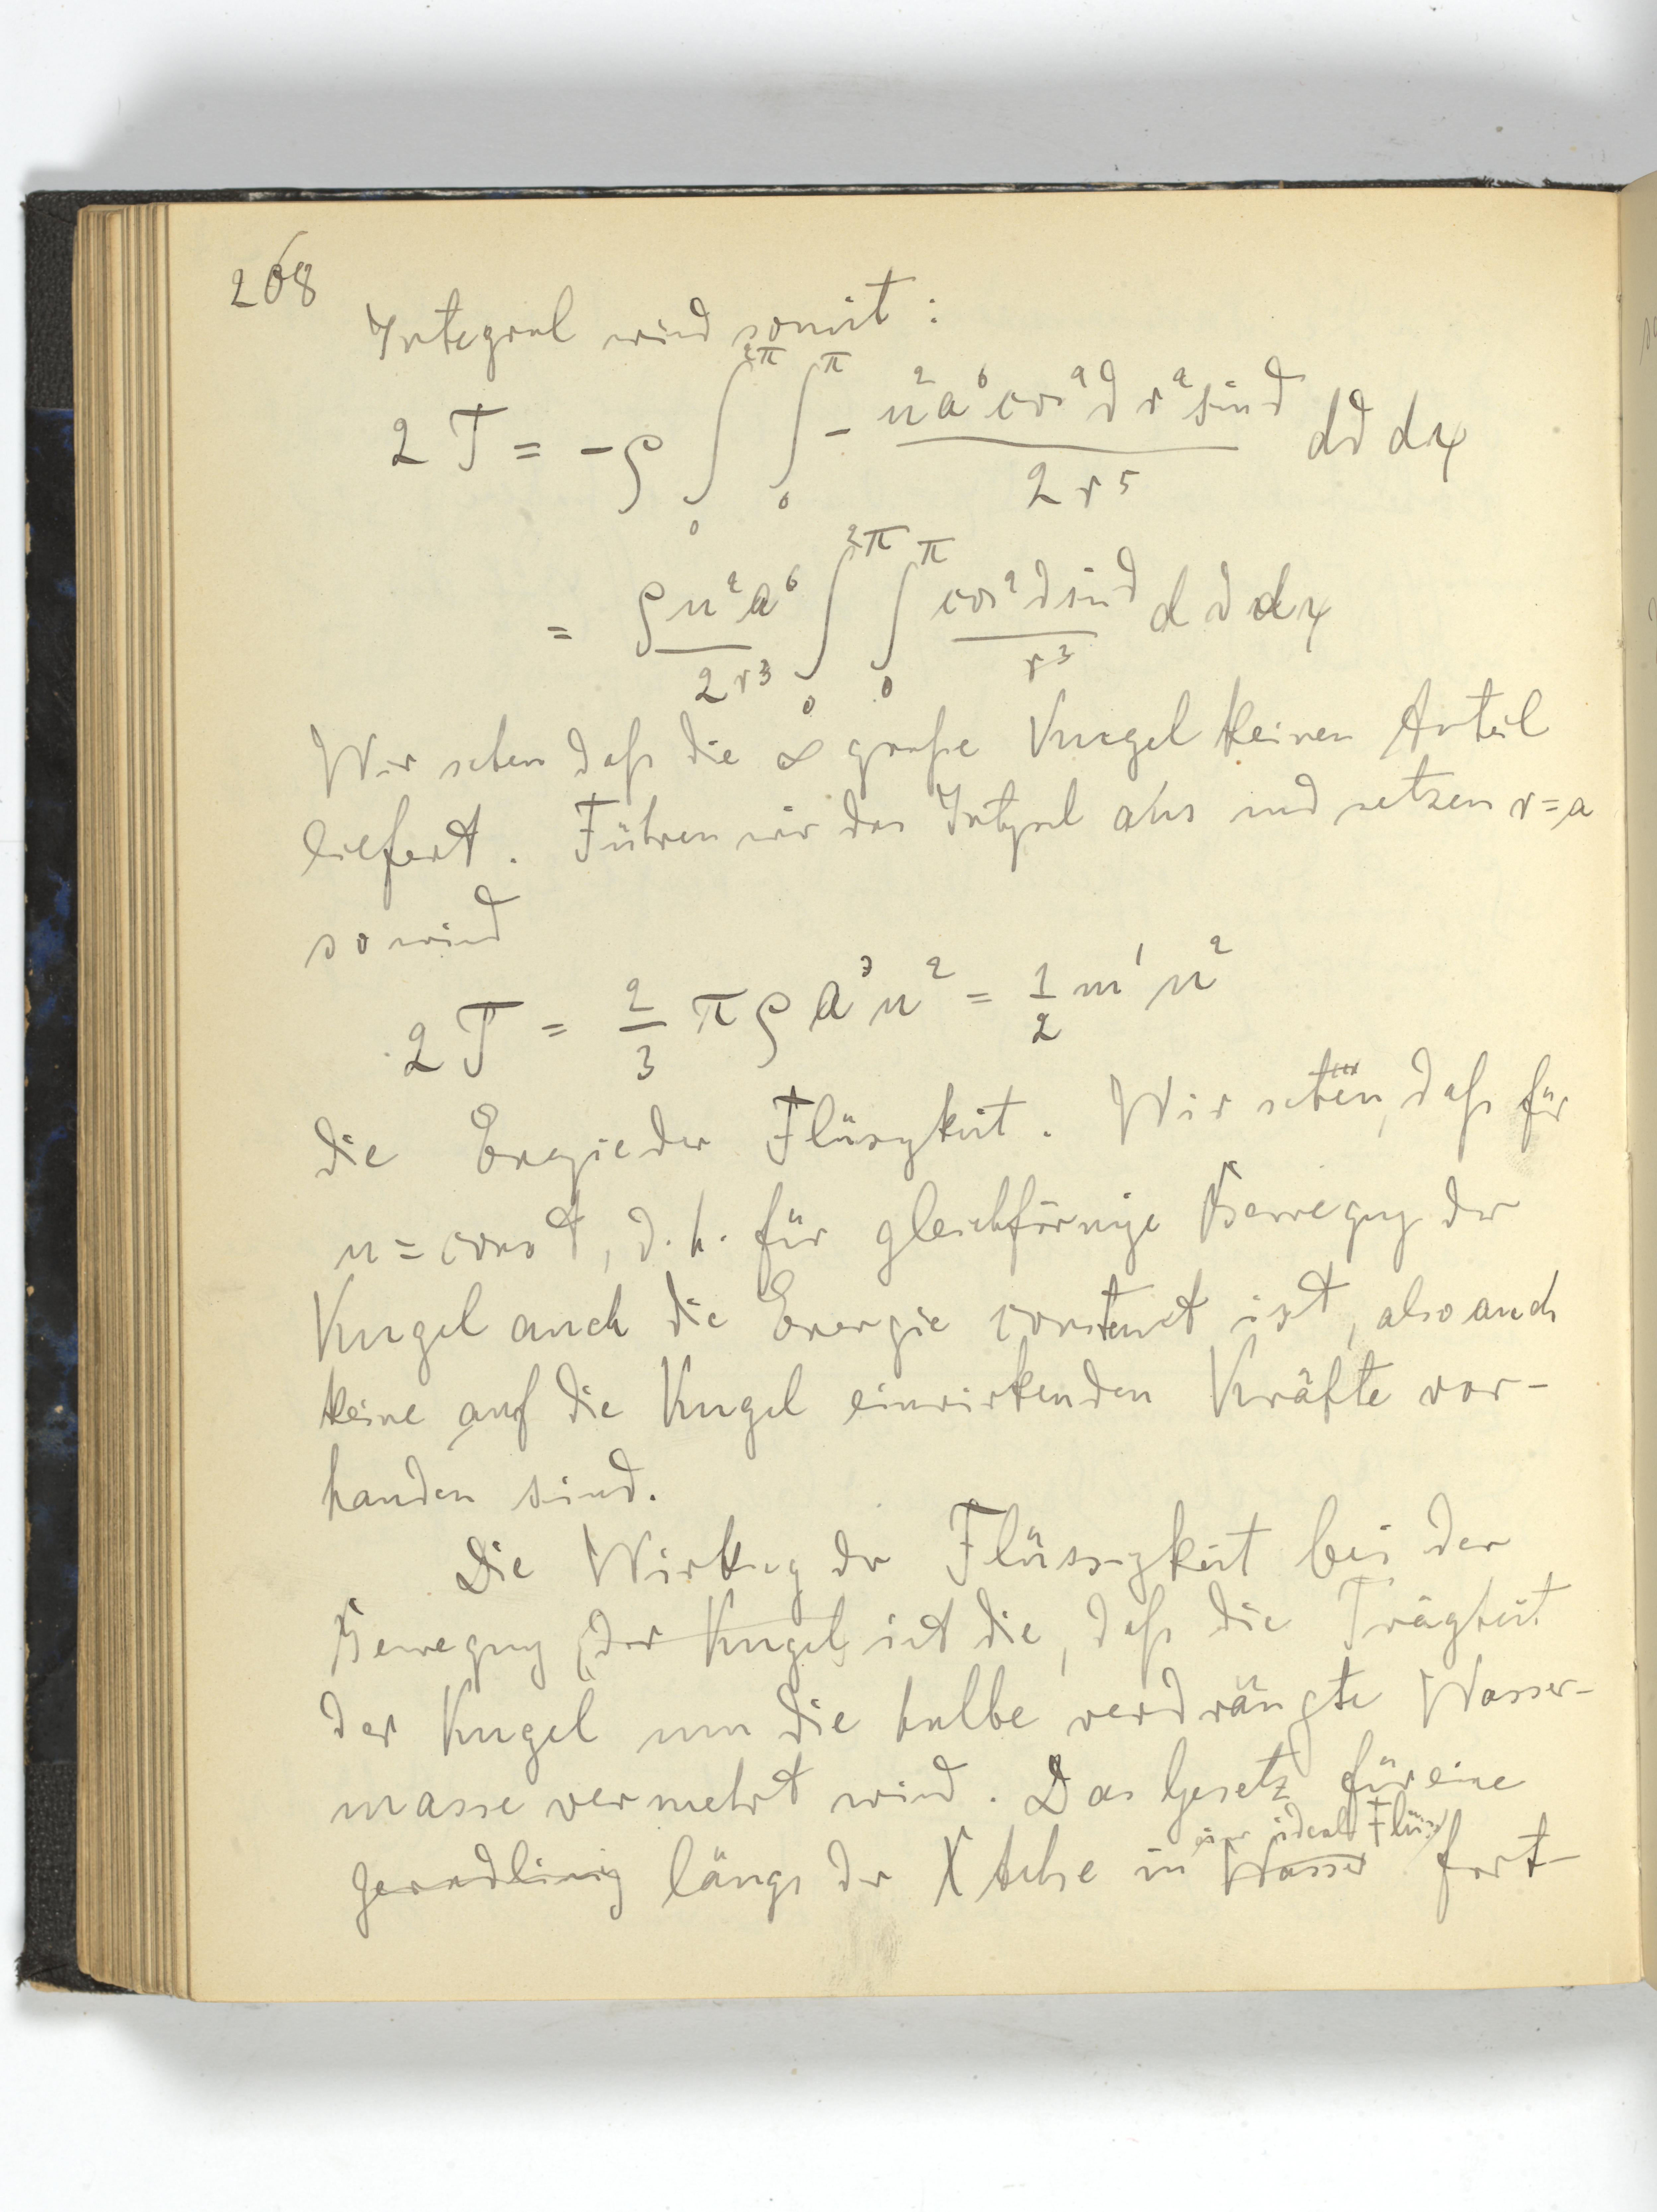 268
Integral wird somit:
2T = -ρ ∫₀^2π ∫₀^π - u²a⁶cos²ϑ r² sinϑ / 2r⁵ dϑ dψ
= ρu²a⁶ / 2r³ ∫₀^2π ∫₀^π cos²ϑ sinϑ / r³ dϑ dψ
Wir sehen daß die ∞ große Kugel keinen Anteil
liefert. Führen wir das Integral aus und setzen r=a
so wird
2T = 2/3 πρa³u² = 1/2 m'u²
die Energie der Flüssgkeit. Wir sehen, daß für
u = const, d.h. für gleichförmige Bewegung der
Kugel auch die Energie constant ist, also auch
keine auf die Kugel einwirkenden Kräfte vor-
handen sind.
Die Wirkung der Flüssigkeit bei der
Bewegung der Kugel ist die, daß die Trägheit
der Kugel um die halbe verdrängte Wasser-
masse vermehrt wird. Das Gesetz für eine
einer ideal Flüss
geradlinig längs der X Achse in Wasser fort-